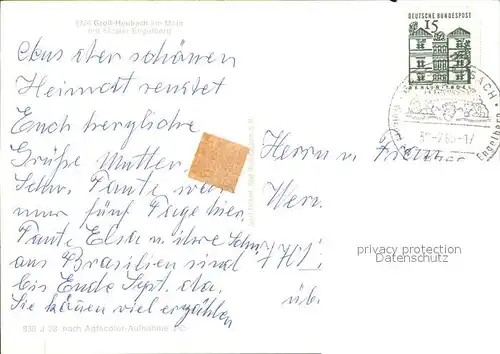 8766 Groß-Heubach am Main
mit Kloster Engelberg
Aus der schönen
Heimat sendet
Euch herzliche
Grüße Mutter.
Schw. Tante war
nur fünf Tage hier.
Tante Elsa u. ihre Schw.
aus Brasilien sind
bis Ende Sept. da.
Sie können viel erzählen
938 J 28 nach Agfacolor-Aufnahme
DEUTSCHE BUNDESPOST
15
BERLIN-TEGEL
Engelberg
Herrn u. Frau
Wern
üb.
privacy protection
Datenschutz